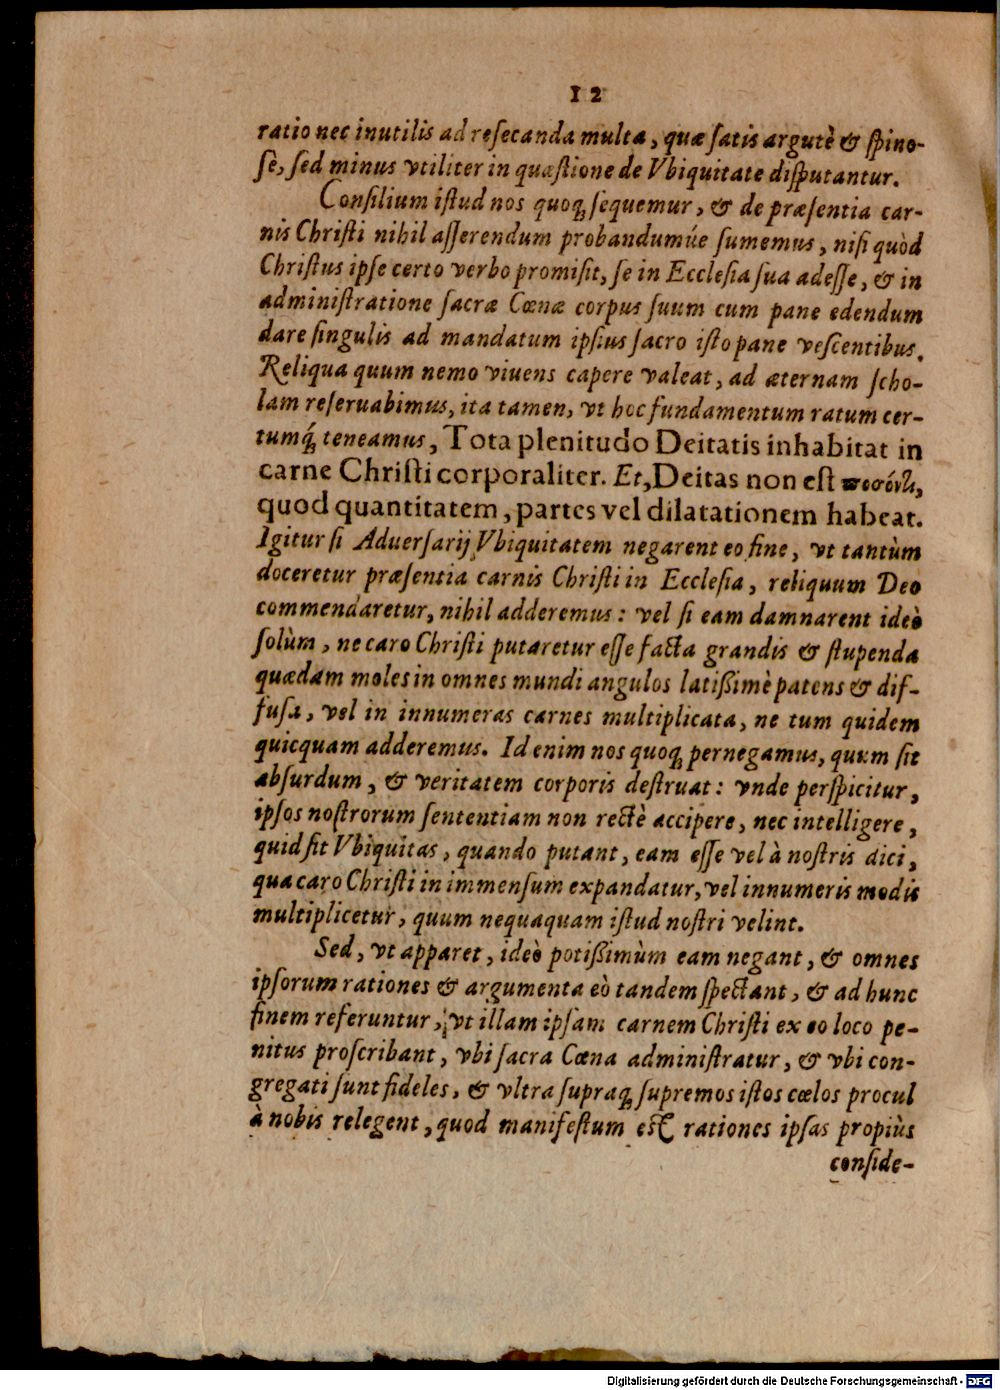 12
ratio nec inutilis ad reſecanda multa, quæ ſatis argutè & ſpino-
ſè, ſed minus vtiliter in quæſtione de Vbiquitate diſputantur.
Conſilium iſtud nos quoq; ſequemur, & de præſentia car-
nis Chriſti nihil aſſerendum probandumúe ſumemus, niſi quòd
Chriſtus ipſe certo verbo promiſit, ſe in Eccleſia ſua adeſſe, & in
adminiſtratione ſacræ Cœnæ corpus ſuum cum pane edendum
dare ſingulis ad mandatum ipſius ſacro iſto pane veſcentibus.
Reliqua quum nemo viuens capere valeat, ad æternam ſcho-
lam reſeruabimus, ita tamen, vt hoc fundamentum ratum cer-
tumq́; teneamus, Tota plenitudo Deitatis inhabitat in
carne Chriſti corporaliter. Et, Deitas non eſt
quod quantitatem, partes vel dilatationem habeat.
Igitur ſi Aduerſarij Vbiquitatem negarent eo fine, vt tantùm
doceretur præſentia carnis Chriſti in Eccleſia, reliquum Deo
commendaretur, nihil adderemus: vel ſi eam damnarent ideò
ſolùm, ne caro Chriſti putaretur eſſe facta grandis & ſtupenda
quædam moles in omnes mundi angulos latißimè patens & dif-
fuſa, vel in innumeras carnes multiplicata, ne tum quidem
quicquam adderemus. Id enim nos quoq; pernegamus, quum ſit
abſurdum, & veritatem corporis deſtruat: vnde perſpicitur,
ipſos noſtrorum ſententiam non rectè accipere, nec intelligere,
quid ſit Vbiquitas, quando putant, eam eſſe vel à noſtris dici,
qua caro Chriſti in immenſum expandatur, vel innumeris modis
multiplicetur, quum nequaquam iſtud noſtri velint.
Sed, vt apparet, ideò potißimùm eam negant, & omnes
ipſorum rationes & argumenta eò tandem ſpectant, & ad hunc
finem referuntur, vt illam ipſam carnem Chriſti ex eo loco pe-
nitus proſcribant, vbi ſacra Cœna adminiſtratur, & vbi con-
gregati ſunt fideles, & vltra ſupraq; ſupremos iſtos cœlos procul
à nobis relegent, quod manifeſtum eſt rationes ipſas propiùs
conſide-
Digitalisierung gefördert durch die Deutsche Forschungsgemeinschaft - DFG